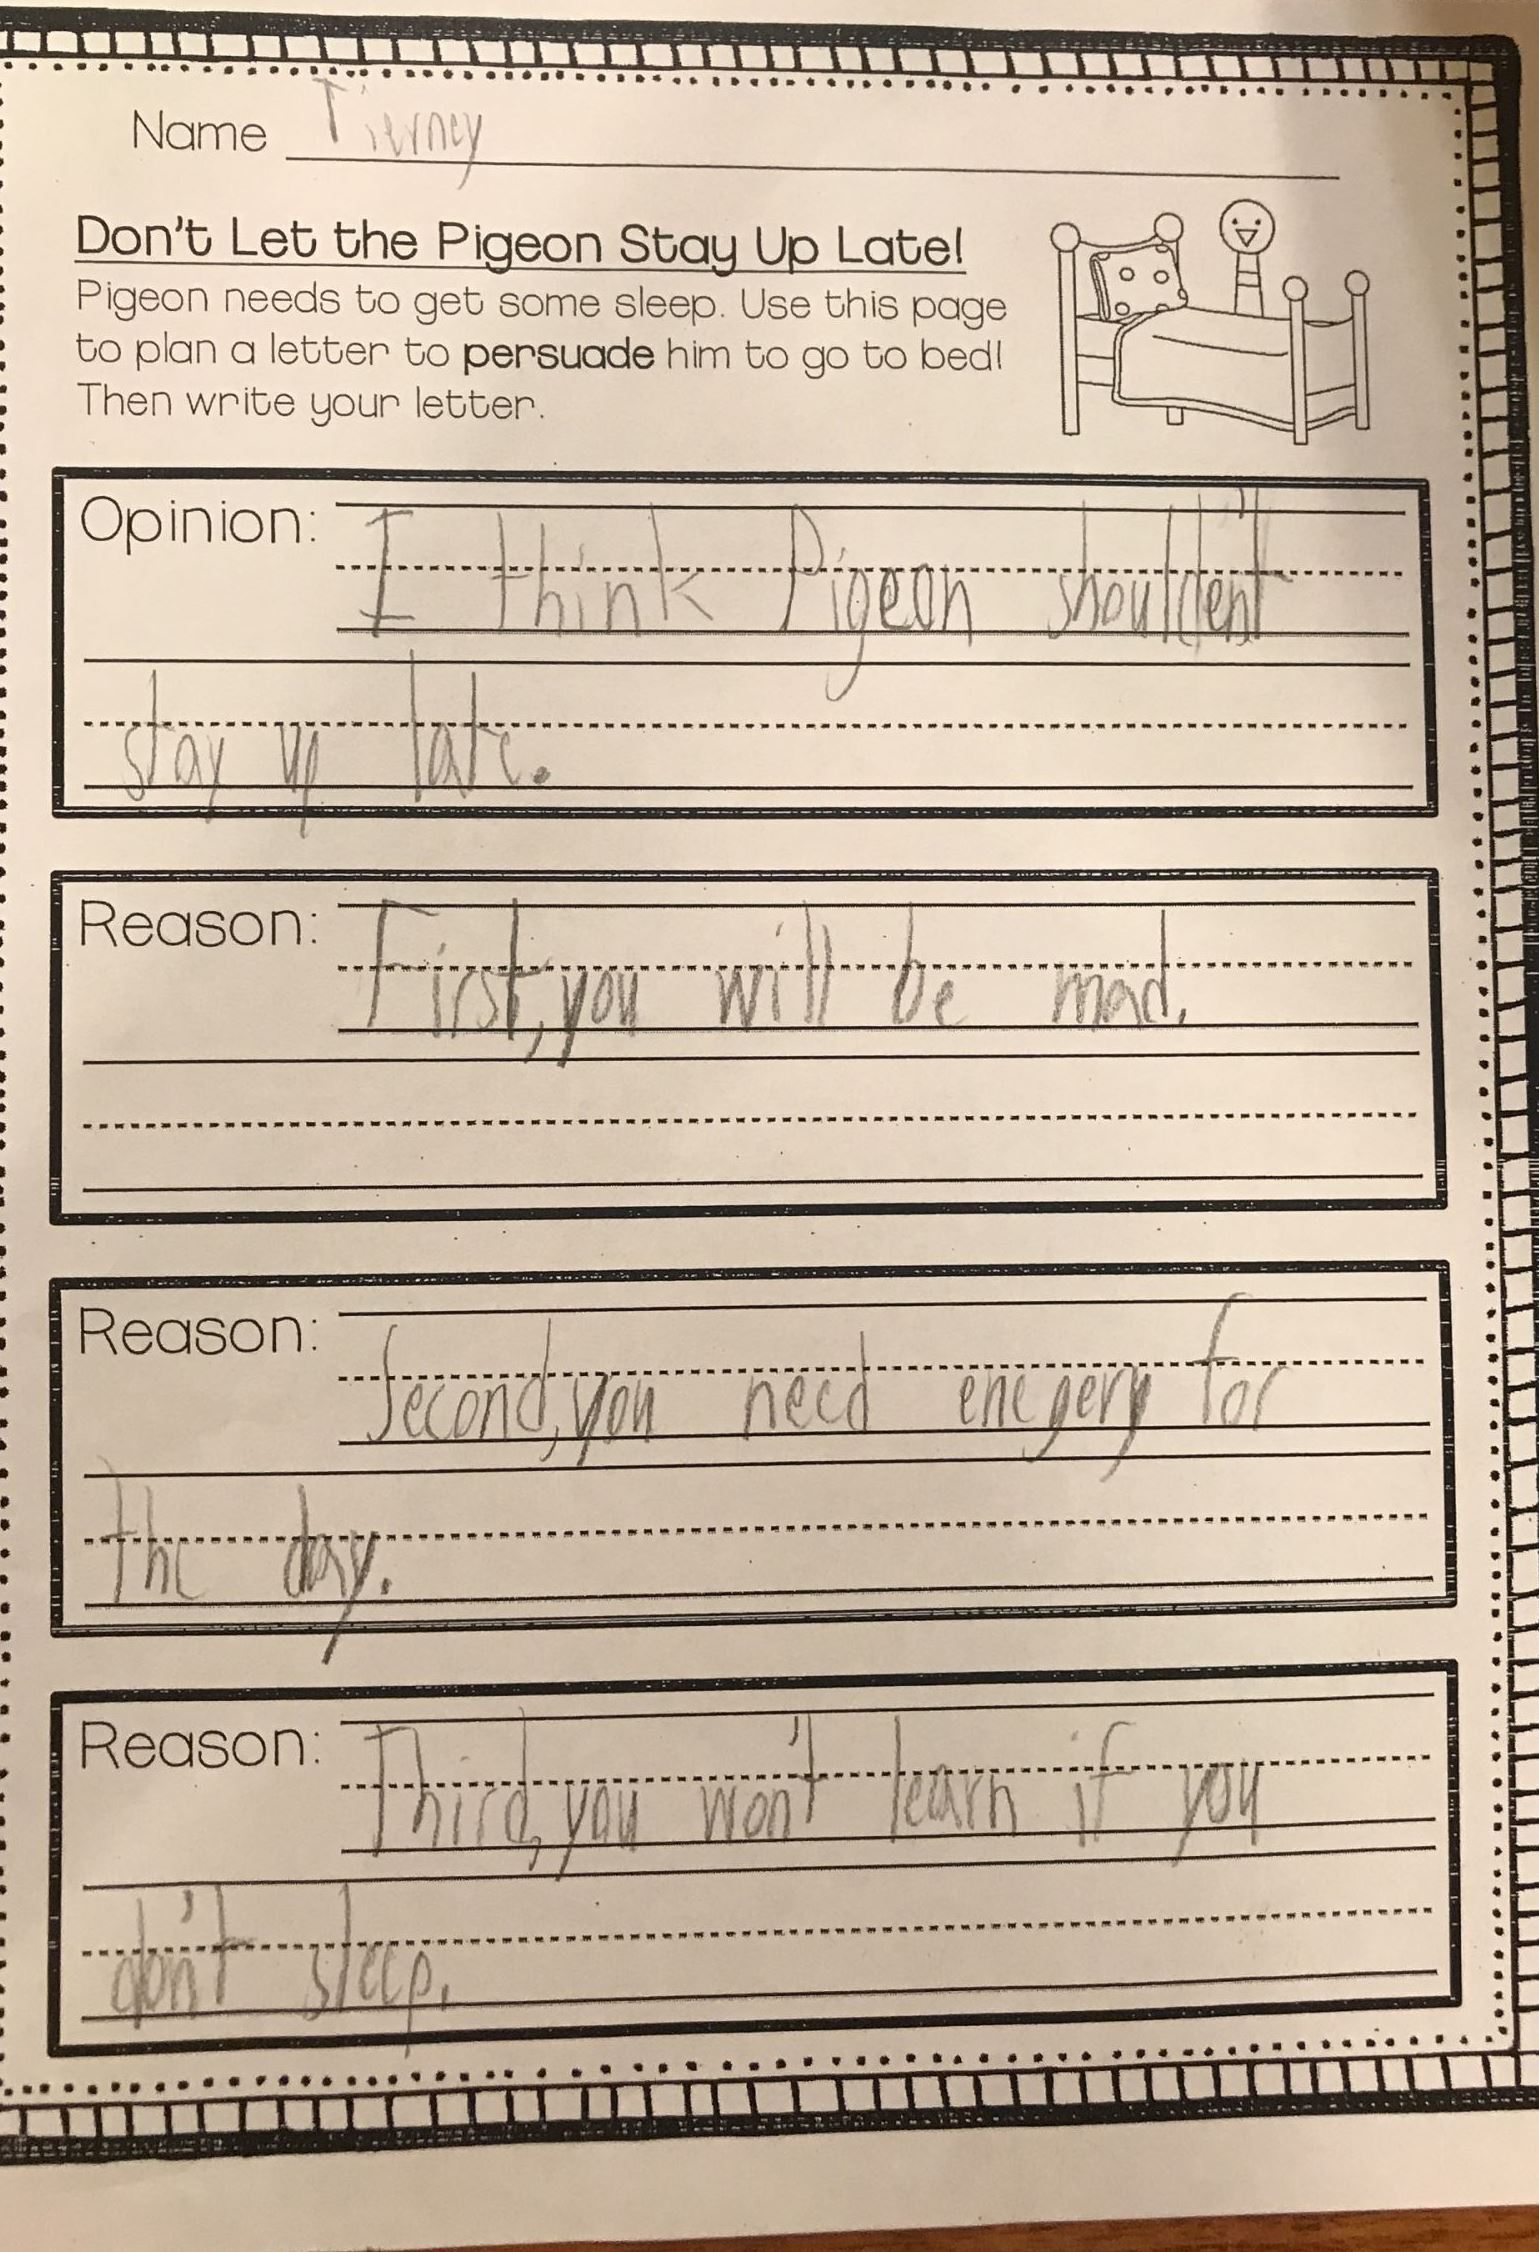 Name Tierney
Don't Let the Pigeon Stay Up Late!
Pigeon needs to get some sleep. Use this page
to plan a letter to persuade him to go to bed!
Then write your letter.
Opinion: I think Pigeon shoulden't
stay up late.
Reason: First, you will be mad.
Reason: Second, you need enegery for
the day.
Reason: Third, you won't learn if you
don't sleep.